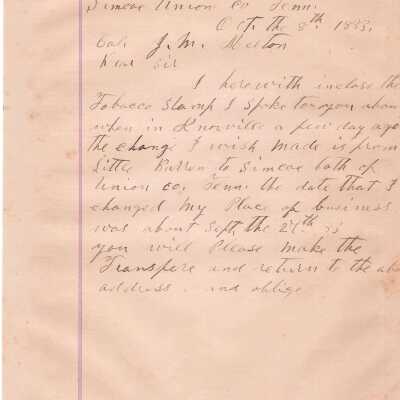 Simcoe Union Co Tenn.
Oct. the 8th 1883.
Col. J. M. Melton
Dear Sir
I herewith inclose the
Tobacco Stamp I spoke to you abou
when in Knoxville a few day ago
the change I wish made is from
Little Barren to Simcoe both of
Union Co, Tenn. the date that I
changed my Place of business
was about Sept, the 27th 83
you will Please make the
Transfere and return to the abo
address. and oblige